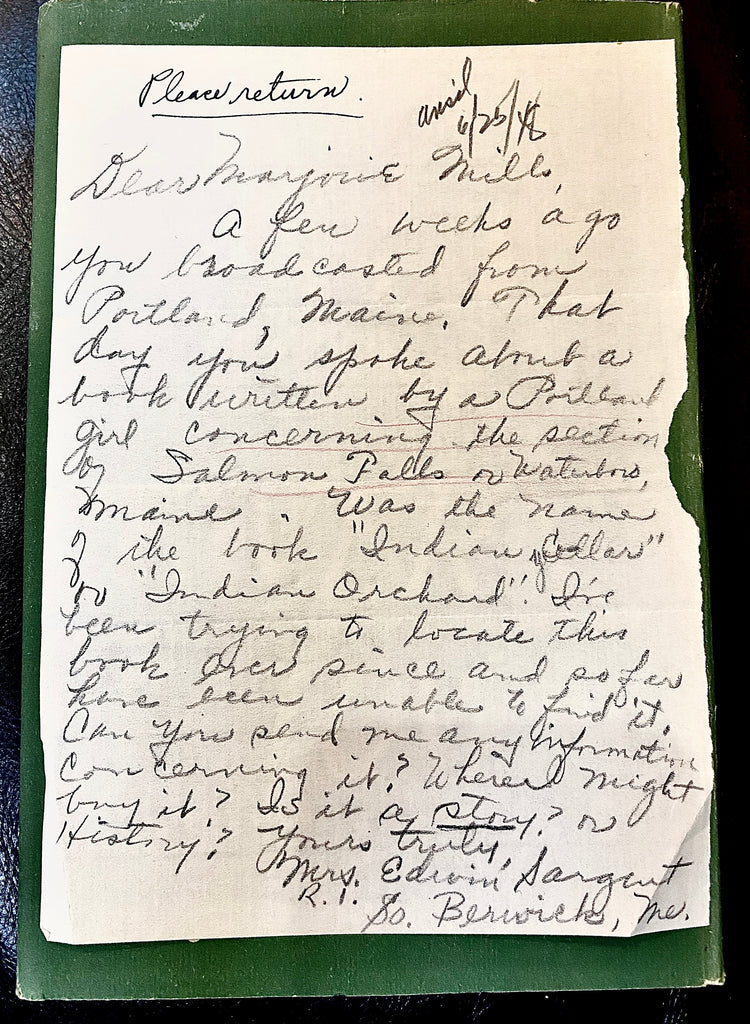 Please return.
ansd
6/25/48
Dear Marjorie Mills,
A few weeks ago
you broadcasted from
Portland, Maine. That
day you spoke about a
book written by a Portland
girl concerning the section
of Salmon Falls or Waterboro,
Maine. Was the name
of the book "Indian Cellar"
or "Indian Orchard". I've
been trying to locate this
book ever since and so far
have been unable to find it.
Can you send me any information
concerning it? Where I might
buy it? Is it a story? or
History? Yours truly,
Mrs. Edwin Sargent
R.1.
So. Berwick, Me.